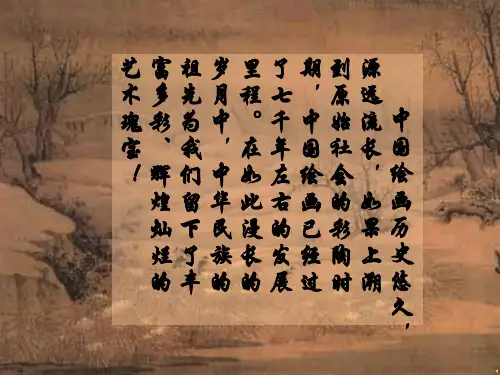 中国绘画历史悠久，
源远流长，如果上溯
到原始社会的彩陶时
期，中国绘画已经过
了七千年左右的发展
里程。在如此漫长的
岁月中，中华民族的
祖先为我们留下了丰
富多彩、辉煌灿烂的
艺术瑰宝！